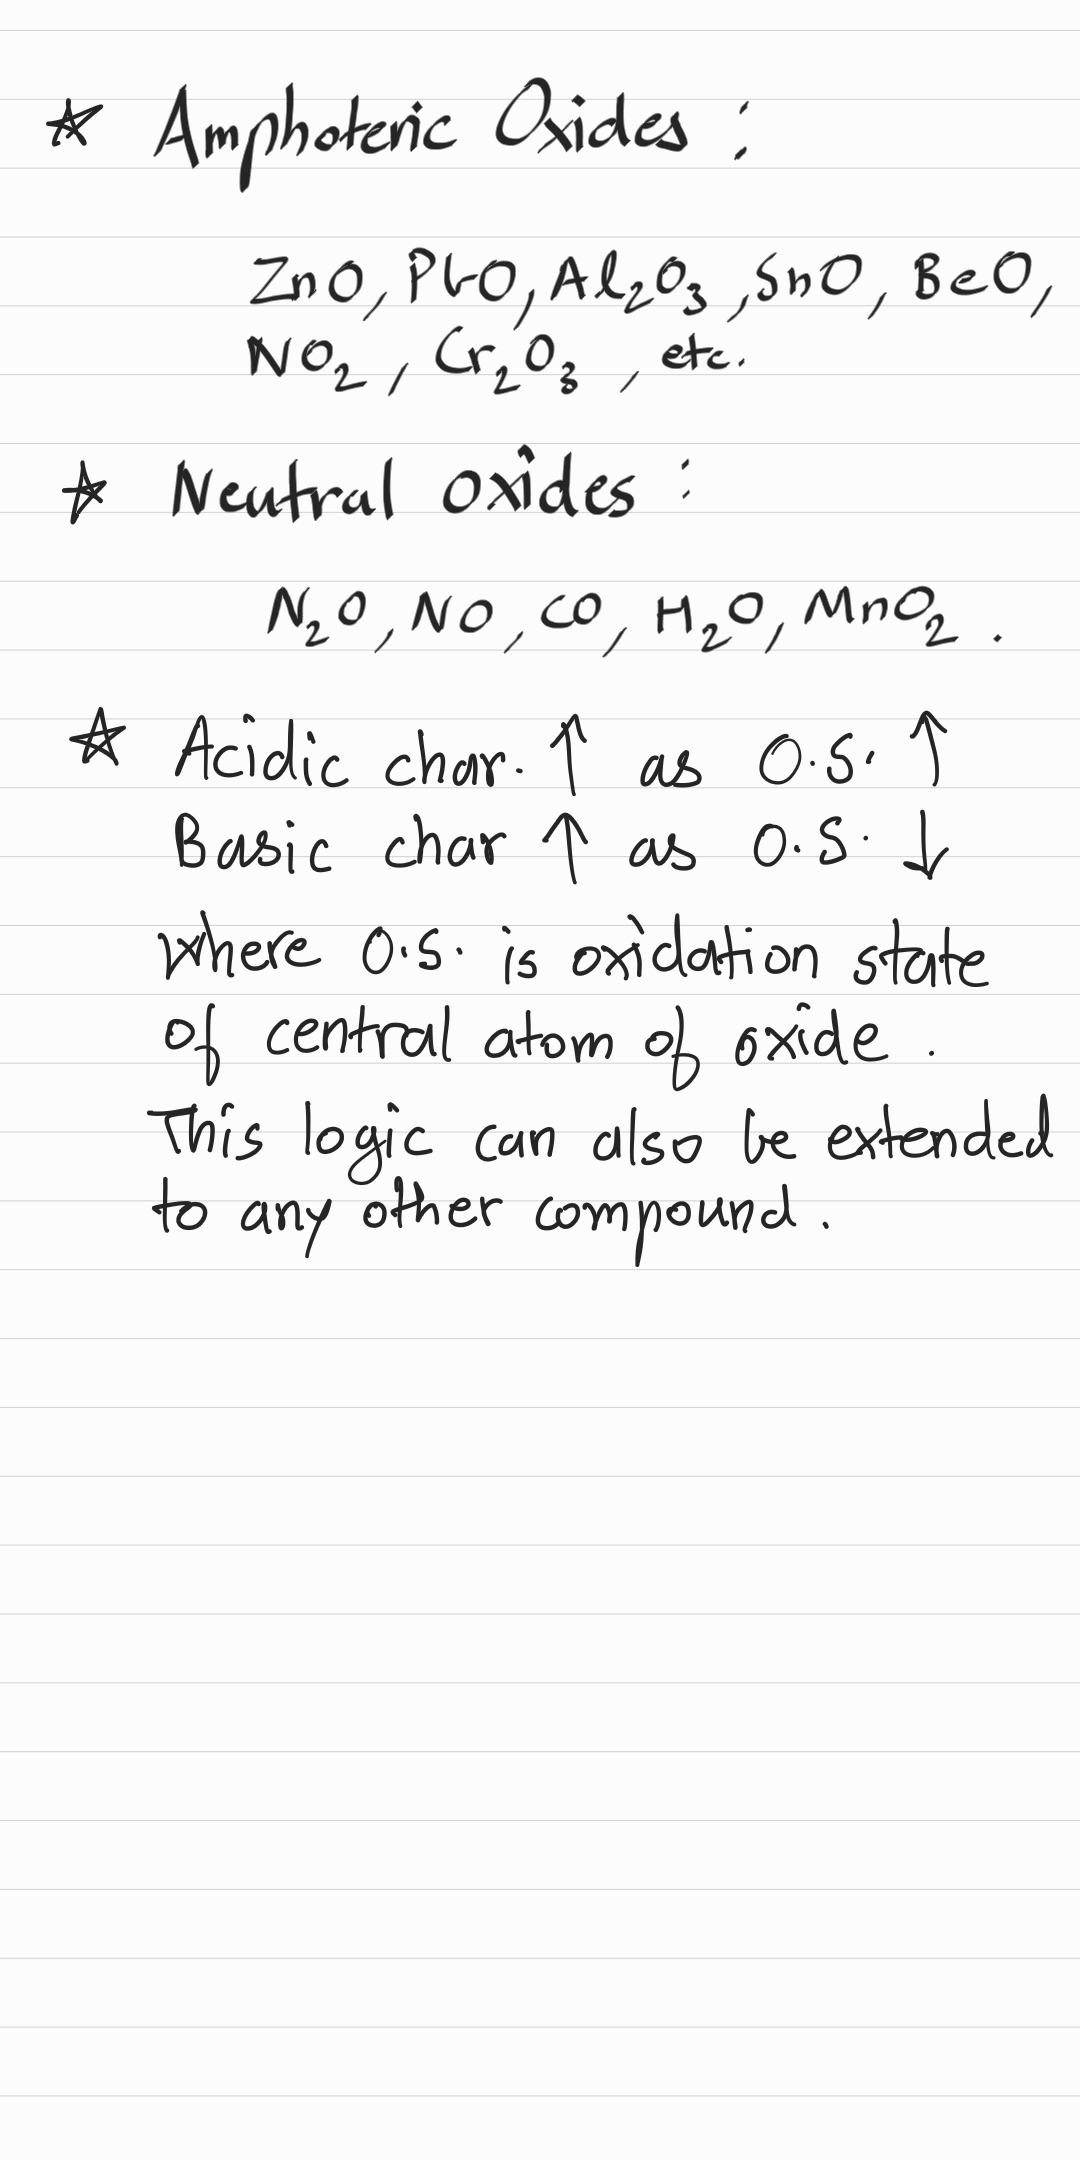 ☆ Amphoteric Oxides :
ZnO, PbO, Al₂O₃, SnO, BeO,
NO₂, Cr₂O₃, etc.
☆ Neutral oxides :
N₂O, NO, CO, H₂O, MnO₂.
☆ Acidic char. ↑ as O.S. ↑
Basic char ↑ as O.S. ↓
where O.S. is oxidation state
of central atom of oxide.
This logic can also be extended
to any other compound.